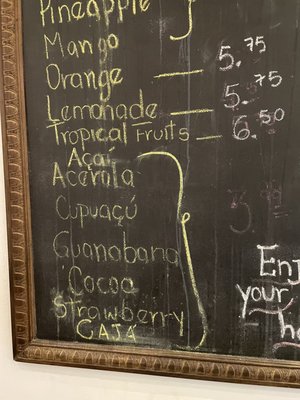 Pineapple
Mango
Orange 5.75
Lemonade 5.75
Tropical Fruits 6.50
Açaí
Acerola
Cupuaçú
Guanabana
Cocoa
Strawberry
CAJÁ
Enj
your